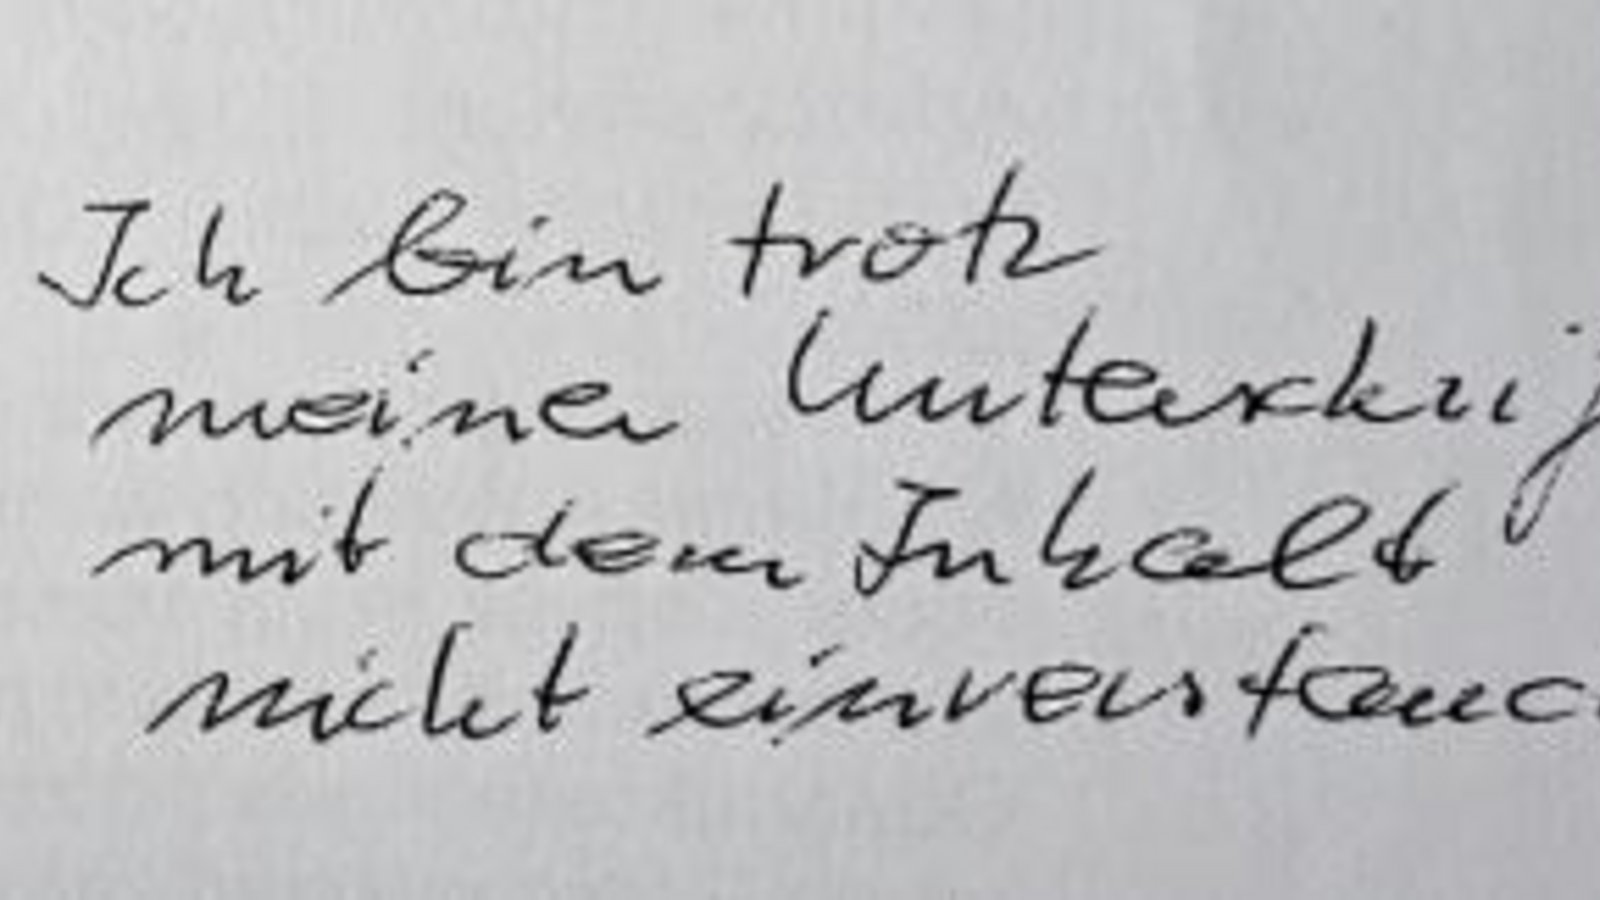 Ich bin trotz
meiner Unterschrif
mit dem Inhalt
nicht einverstand